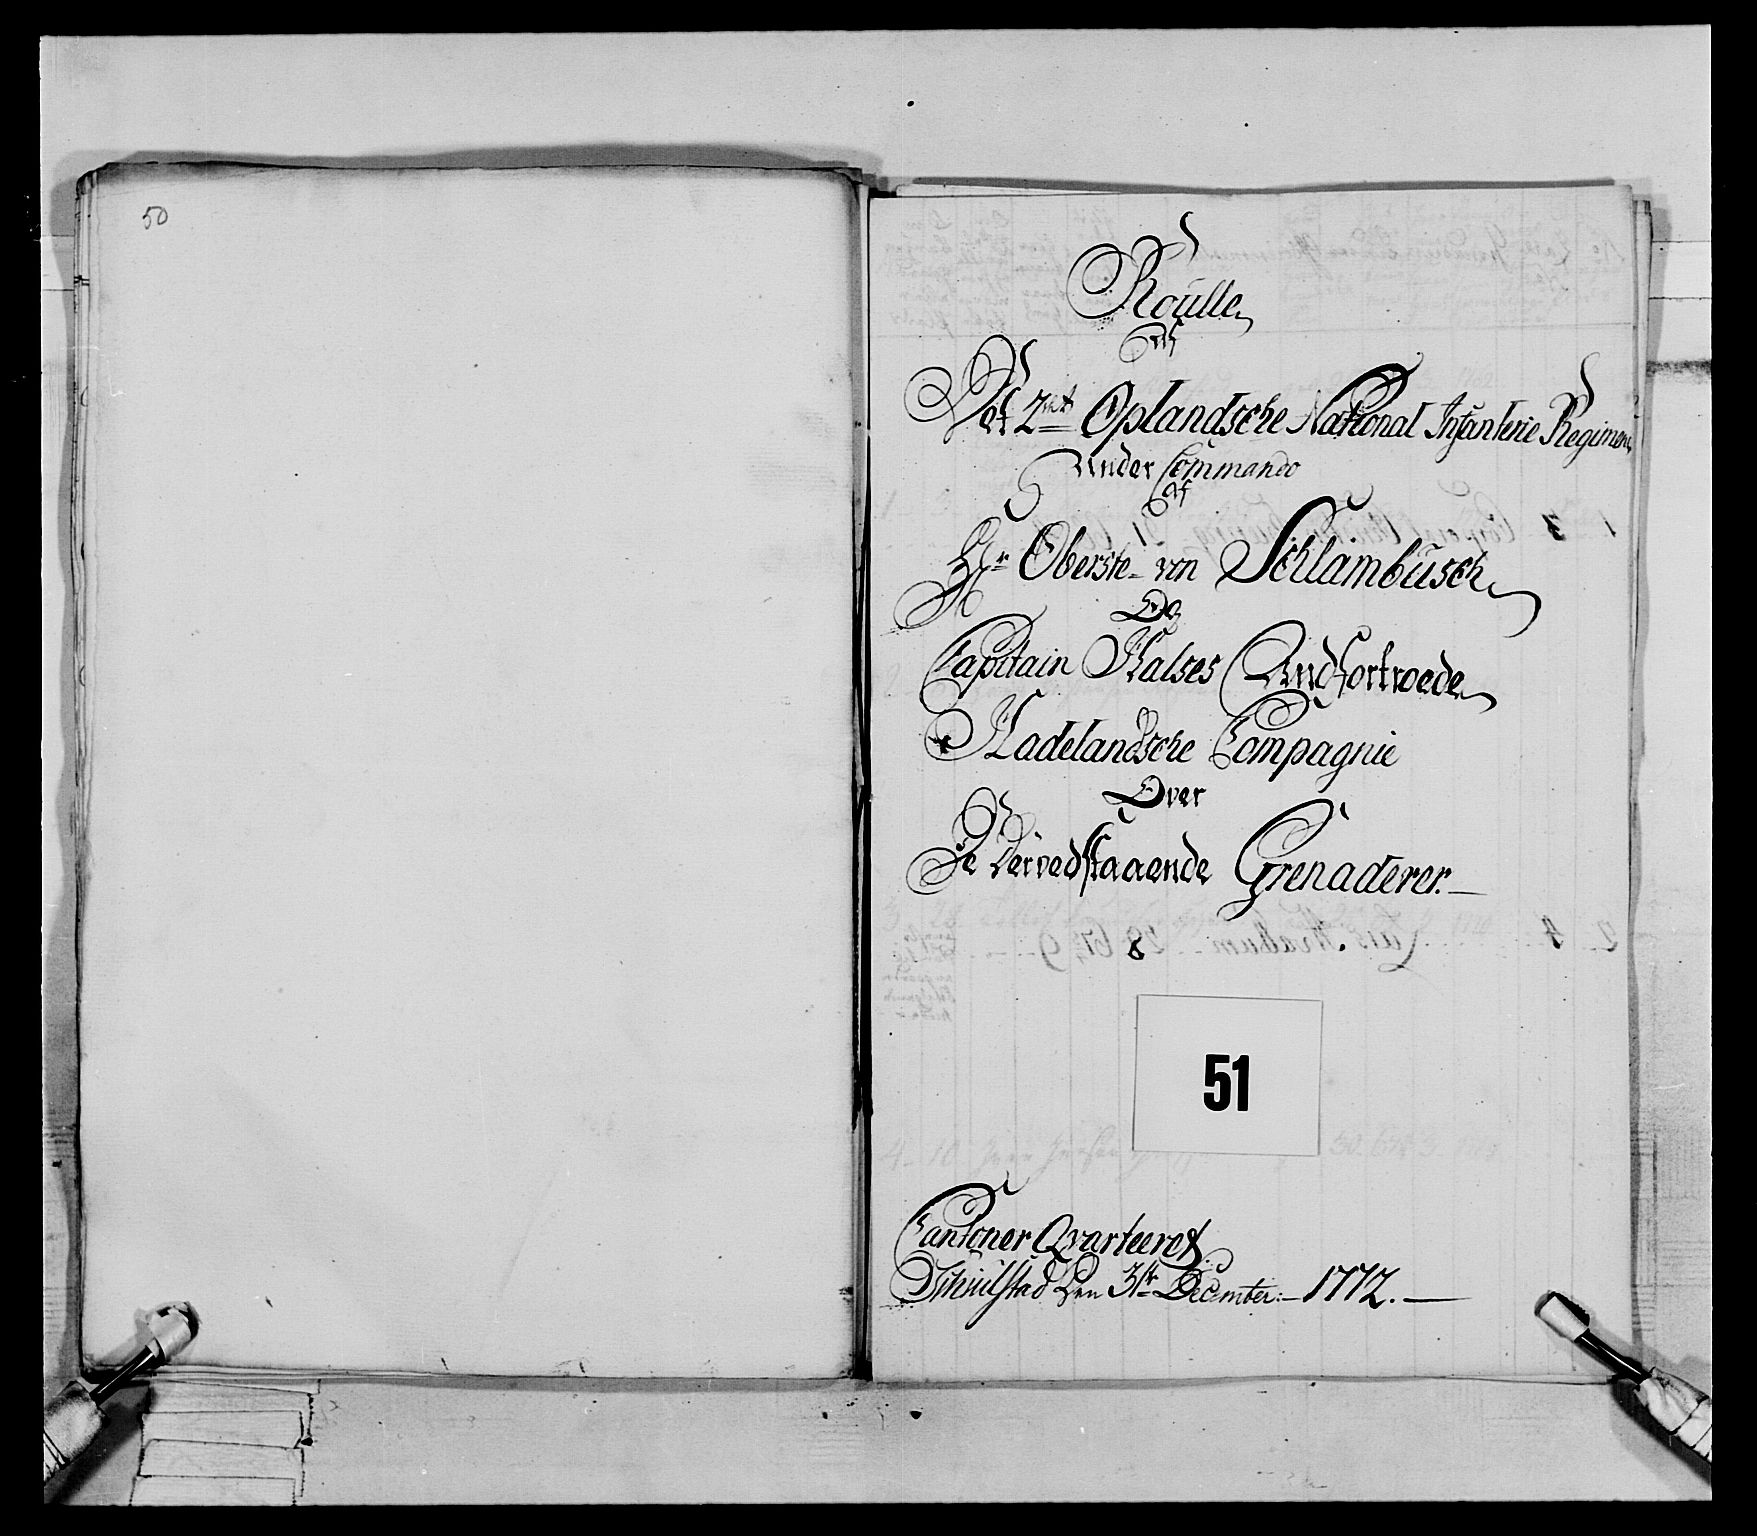 50
Roulle
Af
Det 2det Oplandsche National Infanterie Regimen
Under Commando
af
Hr Oberste von Schlambusch
Og
Capitain Kalses Andfortroede
Hadelandsche Compagnie
Over
De Dervedstaaende Grenaderer.
51
Cantoner Qvarteeret
den 3te December 1772.